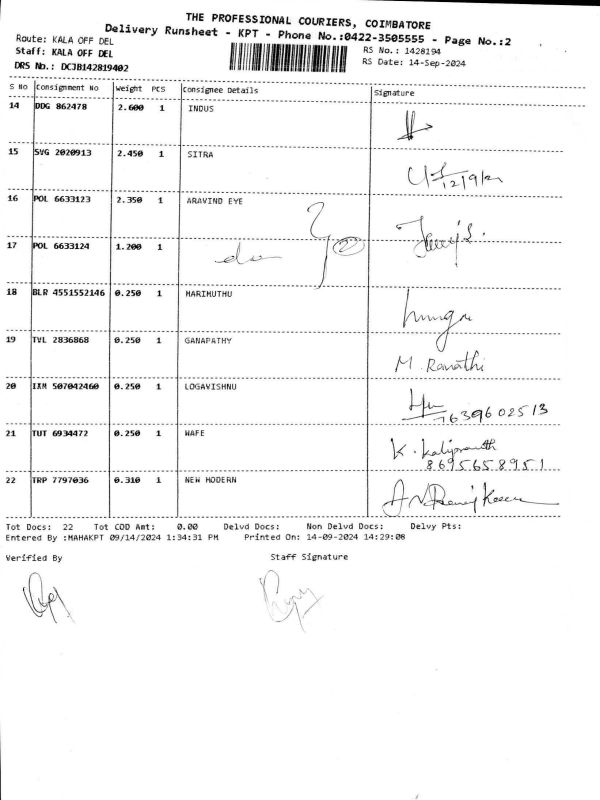 THE PROFESSIONAL COURIERS, COIMBATORE
Delivery Runsheet - KPT - Phone No.:0422-3505555 - Page No.:2
Route: KALA OFF DEL
RS No.: 1428194
Staff: KALA OFF DEL
RS Date: 14-Sep-2024
DRS No.: DCJB142819402
S No Consignment No Weight PCS Consignee Details Signature
14 DDG 862478 2.600 1 INDUS
15 SVG 2020913 2.450 1 SITRA
12/9/24
16 POL 6633123 2.350 1 ARAVIND EYE
17 POL 6633124 1.200 1
2
18 BLR 4551552146 0.250 1 MARIMUTHU
19 TVL 2836868 0.250 1 GANAPATHY
M. Revathi
20 IXM 507042460 0.250 1 LOGAVISHNU
7639602513
21 TUT 6934472 0.250 1 WAFE
K.
8695658951
22 TRP 7797036 0.310 1 NEW MODERN
Tot Docs: 22 Tot COD Amt: 0.00 Delvd Docs: Non Delvd Docs: Delvy Pts:
Entered By :MAHAKPT 09/14/2024 1:34:31 PM Printed On: 14-09-2024 14:29:08
Verified By Staff Signature